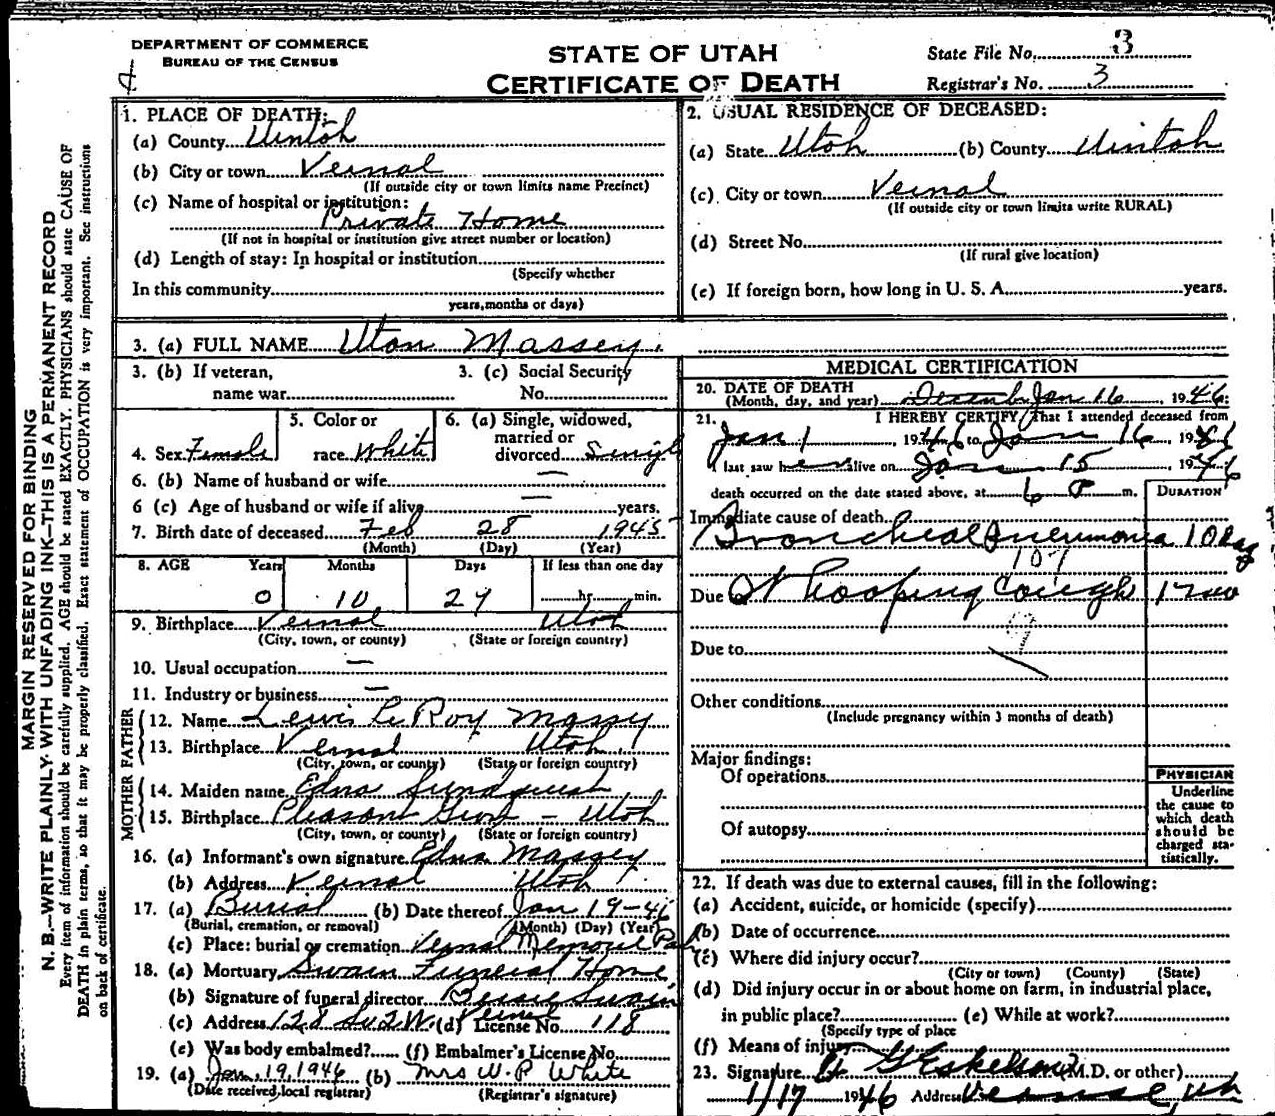 DEPARTMENT OF COMMERCE
BUREAU OF THE CENSUS
STATE OF UTAH
CERTIFICATE OF DEATH
State File No. 3
Registrar's No. 3
MARGIN RESERVED FOR BINDING
N. B.—WRITE PLAINLY WITH UNFADING INK—THIS IS A PERMANENT RECORD
Every item of information should be carefully supplied. AGE should be stated EXACTLY. PHYSICIANS should state CAUSE OF
DEATH in plain terms, so that it may be properly classified. Exact statement of OCCUPATION is very important. See instructions
on back of certificate.
1. PLACE OF DEATH:
(a) County Uintah
(b) City or town Vernal
(If outside city or town limits name Precinct)
(c) Name of hospital or institution:
Private Home
(If not in hospital or institution give street number or location)
(d) Length of stay: In hospital or institution
(Specify whether
In this community
years, months or days)
2. USUAL RESIDENCE OF DECEASED:
(a) State Utah (b) County Uintah
(c) City or town Vernal
(If outside city or town limits write RURAL)
(d) Street No.
(If rural give location)
(e) If foreign born, how long in U. S. A. years.
3. (a) FULL NAME Uton Massey
3. (b) If veteran, 3. (c) Social Security
name war No.
4. Sex Female
5. Color or
race White
6. (a) Single, widowed,
married or
divorced Singl
6. (b) Name of husband or wife —
6 (c) Age of husband or wife if alive — years.
7. Birth date of deceased Feb 28 1945
(Month) (Day) (Year)
8. AGE Years Months Days If less than one day
0 10 27 hr. min.
9. Birthplace Vernal Utah
(City, town, or county) (State or foreign country)
10. Usual occupation —
11. Industry or business —
FATHER
12. Name Lewis LeRoy Massy
13. Birthplace Vernal Utah
(City, town, or county) (State or foreign country)
MOTHER
14. Maiden name Edna
15. Birthplace Pleasant - Utah
(City, town, or county) (State or foreign country)
16. (a) Informant's own signature Edna Massey
(b) Address Vernal Utah
17. (a) Burial (b) Date thereof Jan 19-46
(Burial, cremation, or removal) (Month) (Day) (Year)
(c) Place: burial or cremation Vernal Memorial Park
18. (a) Mortuary Swain Funeral Home
(b) Signature of funeral director Bessie Swain
(c) Address 128 So 2 W. Vernal (d) License No. 118
(e) Was body embalmed? (f) Embalmer's License No.
19. (a) Jan. 19, 1946 (b) Mrs W. P. White
(Date received local registrar) (Registrar's signature)
MEDICAL CERTIFICATION
20. DATE OF DEATH
(Month, day, and year) Jan 16, 1946
21. I HEREBY CERTIFY, That I attended deceased from
Jan 1, 1946 to Jan 16, 1946
I last saw her alive on Jan 15, 1946
death occurred on the date stated above, at 6 P m.
DURATION
Immediate cause of death
Bronchial Pneumonia 10 day
107
Due to Whooping Cough 1 mo
9
Due to
Other conditions
(Include pregnancy within 3 months of death)
Major findings:
Of operations
Of autopsy
PHYSICIAN
Underline
the cause to
which death
should be
charged sta-
tistically.
22. If death was due to external causes, fill in the following:
(a) Accident, suicide, or homicide (specify)
(b) Date of occurrence
(c) Where did injury occur?
(City or town) (County) (State)
(d) Did injury occur in or about home on farm, in industrial place,
in public place? (e) While at work?
(Specify type of place
(f) Means of injury
23. Signature G Eskelson (M.D. or other)
1/17 1946 Address Vernal, Utah